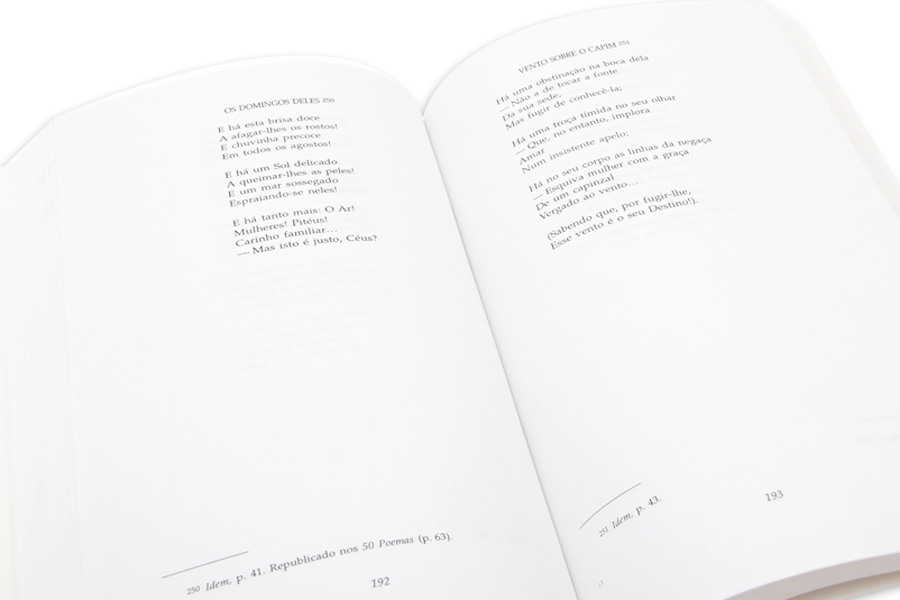 OS DOMINGOS DELES 250
E há esta brisa doce
A afagar-lhes os rostos!
E chuvinha precoce
Em todos os agostos!
E há um Sol delicado
A queimar-lhes as peles!
E um mar sossegado
Espraiando-se neles!
E há tanto mais: O Ar!
Mulheres! Pitéus!
Carinho familiar...
— Mas isto é justo, Céus?
250 Idem, p. 41. Republicado nos 50 Poemas (p. 63).
192
VENTO SOBRE O CAPIM 251
Há uma obstinação na boca dela
— Não a de tocar a fonte
Da sua sede,
Mas fugir de conhecê-la;
Há uma troça tímida no seu olhar
— Que, no entanto, implora
Amar
Num insistente apelo;
Há no seu corpo as linhas da negaça
— Esquiva mulher com a graça
De um capinzal
Vergado ao vento...
(Sabendo que, por fugir-lhe,
Esse vento é o seu Destino!).
251 Idem, p. 43.
193